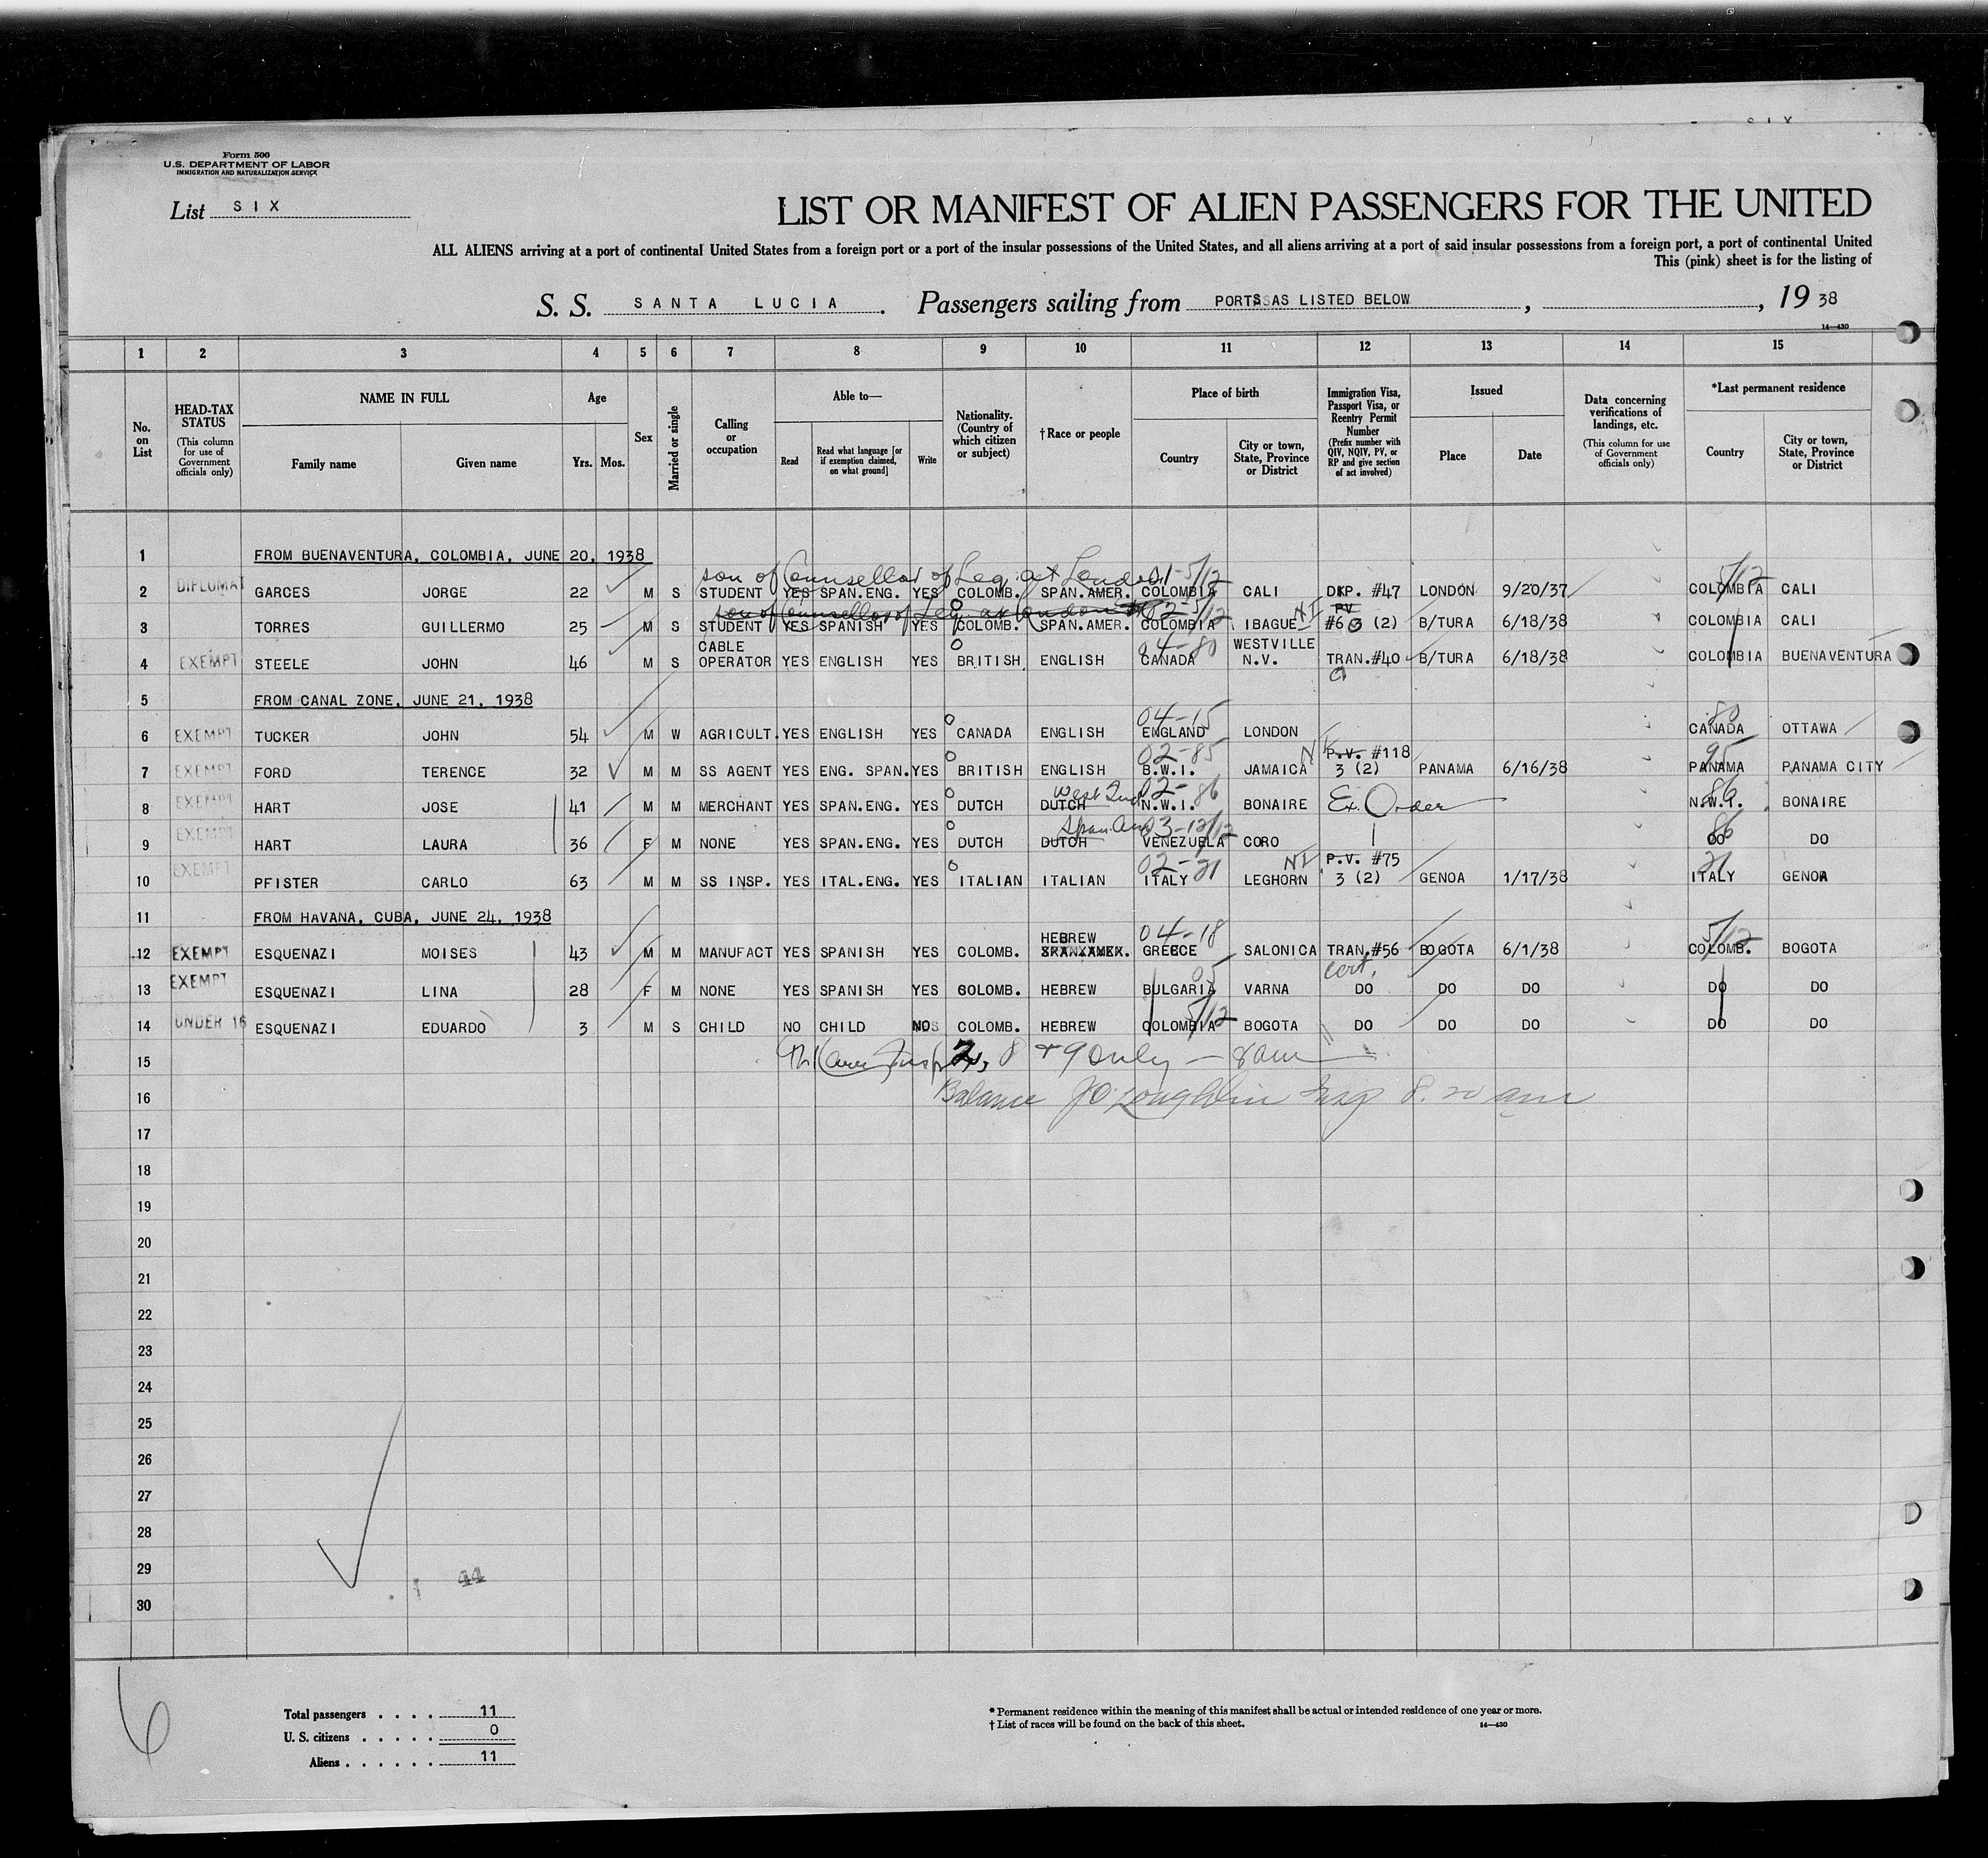 SIX
Form 500
U.S. DEPARTMENT OF LABOR
IMMIGRATION AND NATURALIZATION SERVICE
List SIX
LIST OR MANIFEST OF ALIEN PASSENGERS FOR THE UNITED
ALL ALIENS arriving at a port of continental United States from a foreign port or a port of the insular possessions of the United States, and all aliens arriving at a port of said insular possessions from a foreign port, a port of continental United
This (pink) sheet is for the listing of
S. S. SANTA LUCIA. Passengers sailing from PORTS AS LISTED BELOW, , 19 38
14—430
1 2 3 4 5 6 7 8 9 10 11 12 13 14 15
No. on List
HEAD-TAX STATUS (This column for use of Government officials only)
NAME IN FULL Family name Given name
Age Yrs. Mos.
Sex
Married or single
Calling or occupation
Able to— Read Read what language [or if exemption claimed, on what ground] Write
Nationality. (Country of which citizen or subject)
†Race or people
Place of birth Country City or town, State, Province or District
Immigration Visa, Passport Visa, or Reentry Permit Number (Prefix number with QIV, NQIV, PV, or RP and give section of act involved)
Issued Place Date
Data concerning verifications of landings, etc. (This column for use of Government officials only)
*Last permanent residence Country City or town, State, Province or District
1 FROM BUENAVENTURA, COLOMBIA, JUNE 20, 1938
son of Counsellor of Leg. at London 01-5/12 5/12
2 DIPLOMAT GARCES JORGE 22 M S STUDENT YES SPAN.ENG. YES COLOMB. SPAN.AMER. COLOMBIA CALI DIP. #47 LONDON 9/20/37 COLOMBIA CALI
son of Counsellor of Leg. at London 02-5/12 NI PV
3 TORRES GUILLERMO 25 M S STUDENT YES SPANISH YES COLOMB. SPAN.AMER. COLOMBIA IBAGUE #6 3 (2) B/TURA 6/18/38 COLOMBIA CALI
CABLE 04-80 WESTVILLE
4 EXEMPT STEELE JOHN 46 M S OPERATOR YES ENGLISH YES BRITISH ENGLISH CANADA N.V. TRAN.#40 B/TURA 6/18/38 COLOMBIA BUENAVENTURA
5 FROM CANAL ZONE, JUNE 21, 1938
04-15 80
6 EXEMPT TUCKER JOHN 54 M W AGRICULT. YES ENGLISH YES CANADA ENGLISH ENGLAND LONDON CANADA OTTAWA
02-85 NI P.V. #118 95
7 EXEMPT FORD TERENCE 32 M M SS AGENT YES ENG. SPAN. YES BRITISH ENGLISH B.W.I. JAMAICA 3 (2) PANAMA 6/16/38 PANAMA PANAMA CITY
West Ind 02-86 86
8 EXEMPT HART JOSE 41 M M MERCHANT YES SPAN.ENG. YES DUTCH DUTCH N.W.I. BONAIRE Ex. Order N.W.I. BONAIRE
Span. Am 03-12/12 86
9 EXEMPT HART LAURA 36 F M NONE YES SPAN.ENG. YES DUTCH DUTCH VENEZUELA CORO DO DO
02-21 NI P.V. #75 21
10 EXEMPT PFISTER CARLO 63 M M SS INSP. YES ITAL.ENG. YES ITALIAN ITALIAN ITALY LEGHORN 3 (2) GENOA 1/17/38 ITALY GENOA
11 FROM HAVANA, CUBA, JUNE 24, 1938
HEBREW 04-18 5/12
12 EXEMPT ESQUENAZI MOISES 43 M M MANUFACT YES SPANISH YES COLOMB. SPAN.AMER. GREECE SALONICA TRAN.#56 BOGOTA 6/1/38 COLOMB. BOGOTA
05 Cert.
13 EXEMPT ESQUENAZI LINA 28 F M NONE YES SPANISH YES COLOMB. HEBREW BULGARIA VARNA DO DO DO DO DO
5/12
14 UNDER 16 ESQUENAZI EDUARDO 3 M S CHILD NO CHILD NO COLOMB. HEBREW COLOMBIA BOGOTA DO DO DO DO DO
15 Insp 2, 8 + 9 only — 8 am
16 Balance J O'Loughlin Insp 8.20 am
17
18
19
20
21
22
23
24
25
26
27
28
29 44
30
6
Total passengers . . . . 11
U. S. citizens . . . . . 0
Aliens . . . . . . 11
* Permanent residence within the meaning of this manifest shall be actual or intended residence of one year or more.
† List of races will be found on the back of this sheet. 14—430